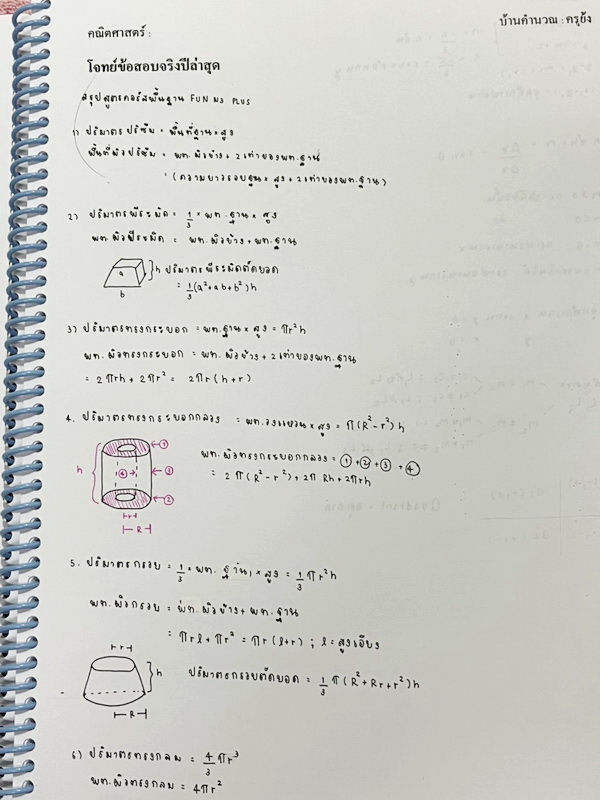 คณิตศาสตร์ :
บ้านคำนวณ : ครูยัง
โจทย์ข้อสอบจริงปีล่าสุด
สรุปสูตรคอร์สพื้นฐาน FUN M3 PLUS
1) ปริมาตรปริซึม = พื้นที่ฐาน × สูง
พื้นที่ผิวปริซึม = พท.ผิวข้าง + 2 เท่าของพท.ฐาน
= (ความยาวรอบฐาน × สูง + 2 เท่าของพท.ฐาน)
2) ปริมาตรพีระมิด = 1/3 × พท.ฐาน × สูง
พท.ผิวพีระมิด = พท.ผิวข้าง + พท.ฐาน
a
b
h
ปริมาตรพีระมิดตัดยอด
= 1/3 (a² + ab + b²) h
3) ปริมาตรทรงกระบอก = พท.ฐาน × สูง = πr²h
พท.ผิวทรงกระบอก = พท.ผิวข้าง + 2 เท่าของพท.ฐาน
= 2πrh + 2πr² = 2πr (h+r)
4. ปริมาตรทรงกระบอกกลวง = พท.วงแหวน × สูง = π(R²-r²)h
h
①
④
③
②
r
R
พท.ผิวทรงกระบอกกลวง = ① + ② + ③ + ④
= 2π(R²-r²) + 2πRh + 2πrh
5. ปริมาตรกรวย = 1/3 × พท. ฐาน × สูง = 1/3 πr²h
พท.ผิวกรวย = พท.ผิวข้าง + พท.ฐาน
= πrl + πr² = πr (l+r) ; l = สูงเอียง
r
h
R
ปริมาตรกรวยตัดยอด = 1/3 π(R²+Rr+r²)h
6) ปริมาตรทรงกลม = 4/3 πr³
พท.ผิวทรงกลม = 4πr²